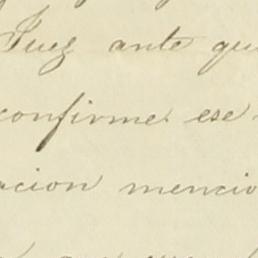 Juez ante qu
confirme ese
acion mencio